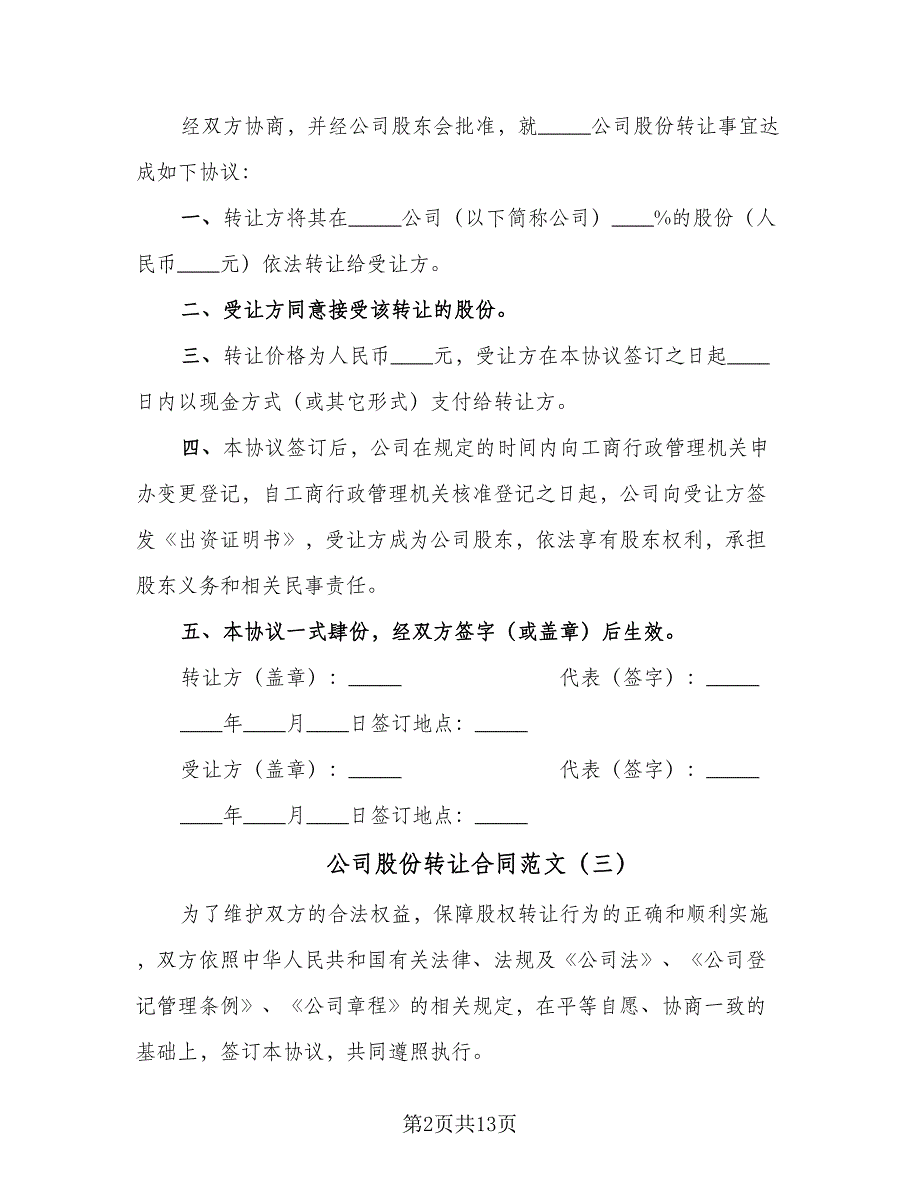 经双方协商，并经公司股东会批准，就_____公司股份转让事宜达
成如下协议：
一、转让方将其在_____公司（以下简称公司）____%的股份（人
民币____元）依法转让给受让方。
二、受让方同意接受该转让的股份。
三、转让价格为人民币____元，受让方在本协议签订之日起____
日内以现金方式（或其它形式）支付给转让方。
四、本协议签订后，公司在规定的时间内向工商行政管理机关申
办变更登记，自工商行政管理机关核准登记之日起，公司向受让方签
发《出资证明书》，受让方成为公司股东，依法享有股东权利，承担
股东义务和相关民事责任。
五、本协议一式肆份，经双方签字（或盖章）后生效。
转让方（盖章）：_____ 代表（签字）：_____
____年____月____日签订地点：_____
受让方（盖章）：_____ 代表（签字）：_____
____年____月____日签订地点：_____
公司股份转让合同范文（三）
为了维护双方的合法权益，保障股权转让行为的正确和顺利实施
，双方依照中华人民共和国有关法律、法规及《公司法》、《公司登
记管理条例》、《公司章程》的相关规定，在平等自愿、协商一致的
基础上，签订本协议，共同遵照执行。
第2页共13页